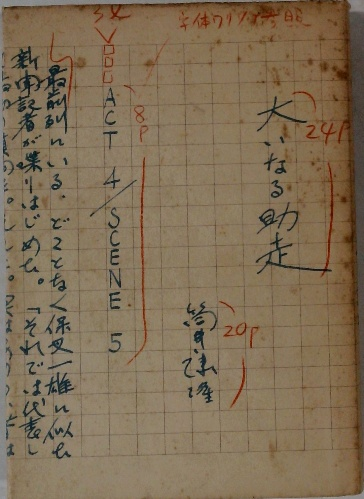 字体ワリツケ
大いなる助走
24P
筒井康隆
20P
3字
ACT 4/SCENE 5
8P
最前列にいる、どことなく保叉一雄に似た
新聞記者が喋りはじめた。「それでは代表し